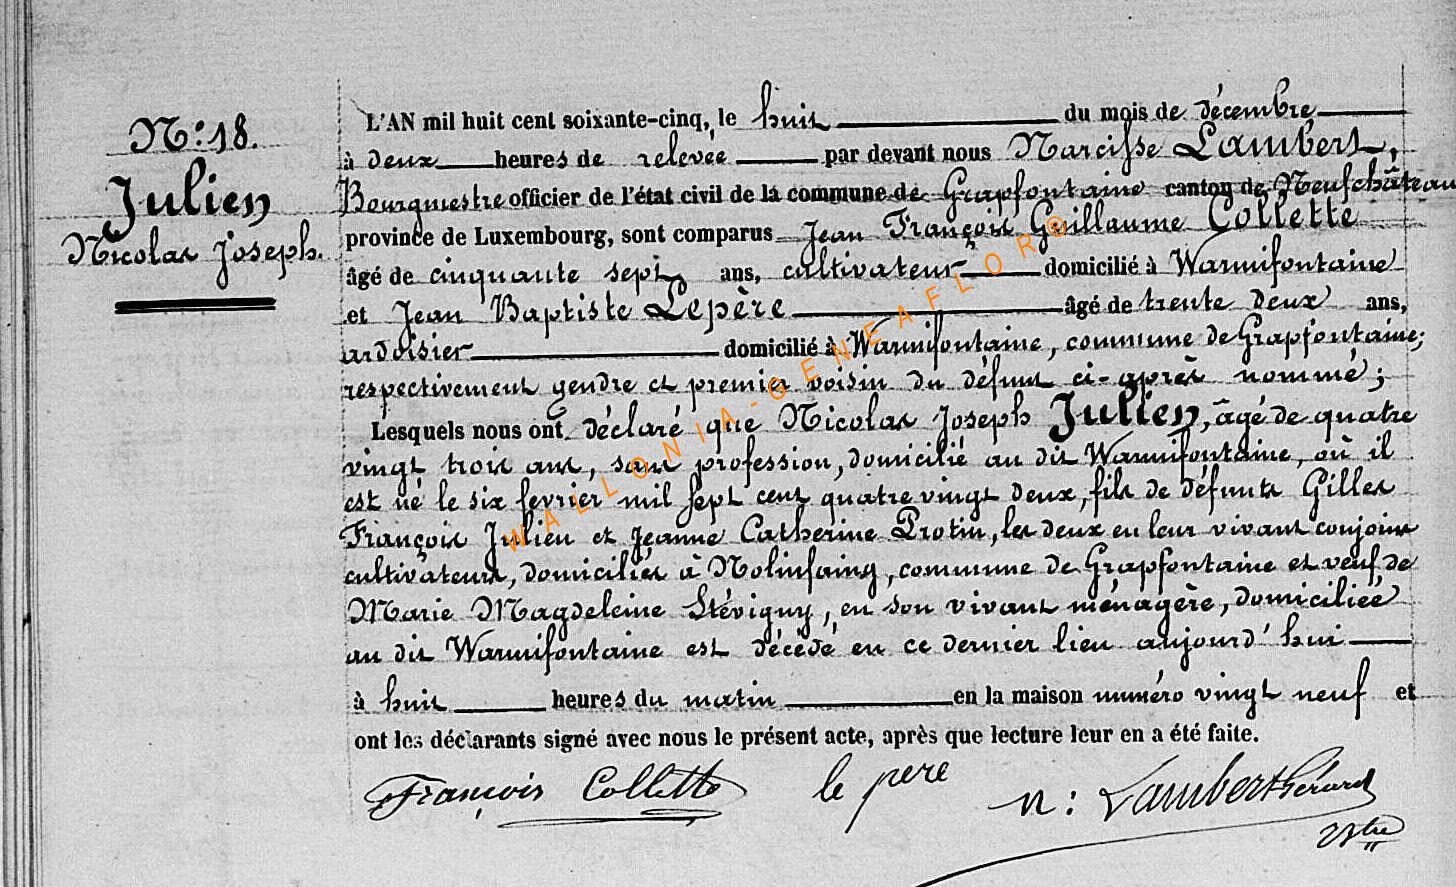 N.º 18.
Julien
Nicolas Joseph.
L'AN mil huit cent soixante-cinq, le huit du mois de décembre
à deux heures de relevée par devant nous Narcisse Lambert,
Bourgmestre officier de l'état civil de la commune de Grapfontaine canton de Neufchâteau
province de Luxembourg, sont comparus Jean François Guillaume Collette
âgé de cinquante sept ans, cultivateur domicilié à Warmifontaine
et Jean Baptiste Lepère âgé de trente deux ans,
ardoisier domicilié à Warmifontaine, commune de Grapfontaine;
respectivement gendre et premier voisin du défunt ci-après nommé;
Lesquels nous ont déclaré que Nicolas Joseph Julien, âgé de quatre
vingt trois ans, sans profession, domicilié au dit Warmifontaine, où il
est né le six fevrier mil sept cent quatre vingt deux, fils de défunts Gilles
François Julien et Jeanne Catherine Protin, les deux en leur vivant conjoins
cultivateurs, domiciliés à Nolinfaing, commune de Grapfontaine et veuf de
Marie Magdeleine Stévigny, en son vivant ménagère, domiciliée
au dit Warmifontaine est décédé en ce dernier lieu aujourd'hui
à huit heures du matin en la maison numéro vingt neuf et
ont les déclarants signé avec nous le présent acte, après que lecture leur en a été faite.
François Collette le pere N: Lambert Gérard
WALLONIA-GENEAFLOR©